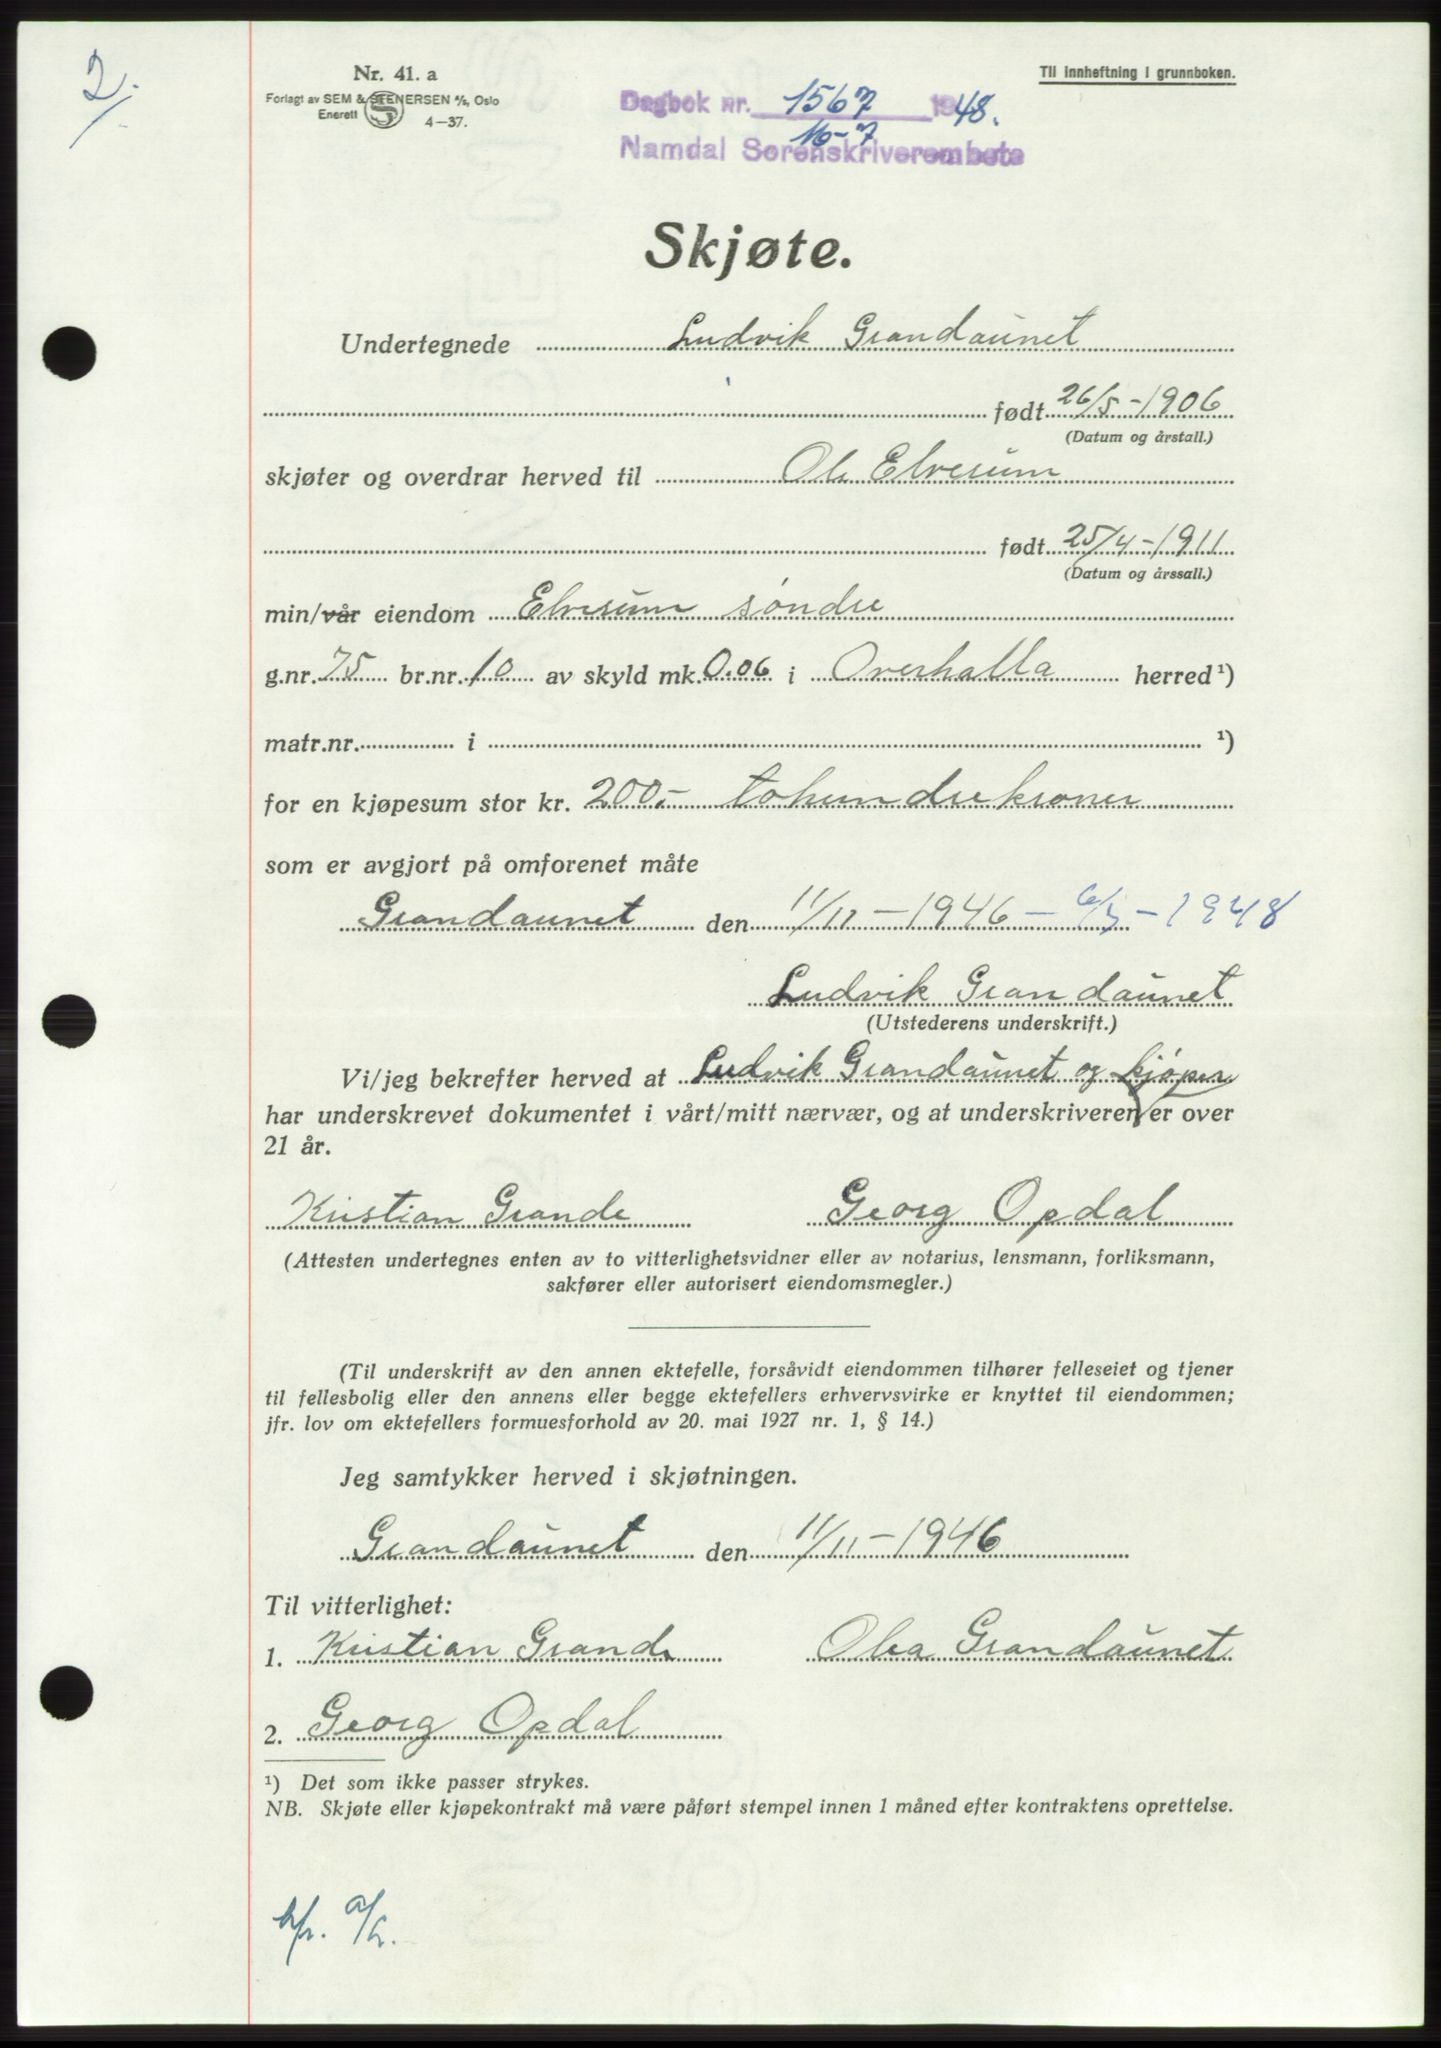 2.
Nr. 41. a
Forlagt av SEM & STENERSEN A/S, Oslo
Enerett
4—37.
Til innheftning i grunnboken.
Dagbok nr. 1567 1948.
16-7
Namdal Sorenskriverembete
Skjøte.
Undertegnede Ludvik Grandaunet
født 26/5-1906
(Datum og årstall.)
skjøter og overdrar herved til Ola Elvesum
født 25/4-1911
(Datum og årssall.)
min/vår eiendom Elvesum søndre
g.nr. 75 br.nr. 10 av skyld mk. 0.06 i Overhalla herred ¹)
matr.nr. i ¹)
for en kjøpesum stor kr. 200,- tohundrekroner
som er avgjort på omforenet måte
Grandaunet den 11/11-1946 - 6/5-1948
Ludvik Grandaunet
(Utstederens underskrift.)
Vi/jeg bekrefter herved at Ludvik Grandaunet og kjøper
har underskrevet dokumentet i vårt/mitt nærvær, og at underskriveren er over
21 år.
Kristian Grande Georg Opdal
(Attesten undertegnes enten av to vitterlighetsvidner eller av notarius, lensmann, forliksmann,
sakfører eller autorisert eiendomsmegler.)
(Til underskrift av den annen ektefelle, forsåvidt eiendommen tilhører felleseiet og tjener
til fellesbolig eller den annens eller begge ektefellers erhvervsvirke er knyttet til eiendommen;
jfr. lov om ektefellers formuesforhold av 20. mai 1927 nr. 1, § 14.)
Jeg samtykker herved i skjøtningen.
Grandaunet den 11/11-1946
Til vitterlighet:
1. Kristian Grande Olea Grandaunet
2. Georg Opdal
¹) Det som ikke passer strykes.
NB. Skjøte eller kjøpekontrakt må være påført stempel innen 1 måned efter kontraktens oprettelse.